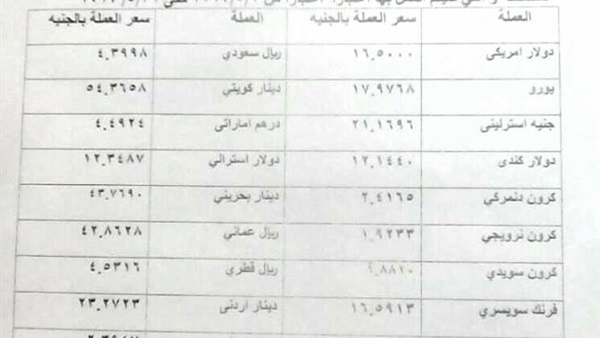 العملة سعر العملة بالجنيه العملة سعر العملة بالجنيه
دولار امريكى ١٦.٥٠٠٠ ريال سعودي ٤.٣٩٩٨
يورو ١٧.٩٧٦٨ دينار كويتي ٥٤.٣٦٥٨
جنيه استرلينى ٢١.١٦٩٦ درهم اماراتى ٤.٤٩٢٤
دولار كندى ١٢.١٤٤٠ دولار استرالي ١٢.٣٤٨٧
كرون دنمركي ٢.٤١٦٥ دينار بحريني ٤٣.٧٦٩٠
كرون نرويجي ١.٩٢٣٣ ريال عماني ٤٢.٨٦٢٨
كرون سويدي ريال قطري ٤.٥٣١٦
فرنك سويسري ١٦.٥٩١٣ دينار اردنى ٢٣.٢٧٢٣